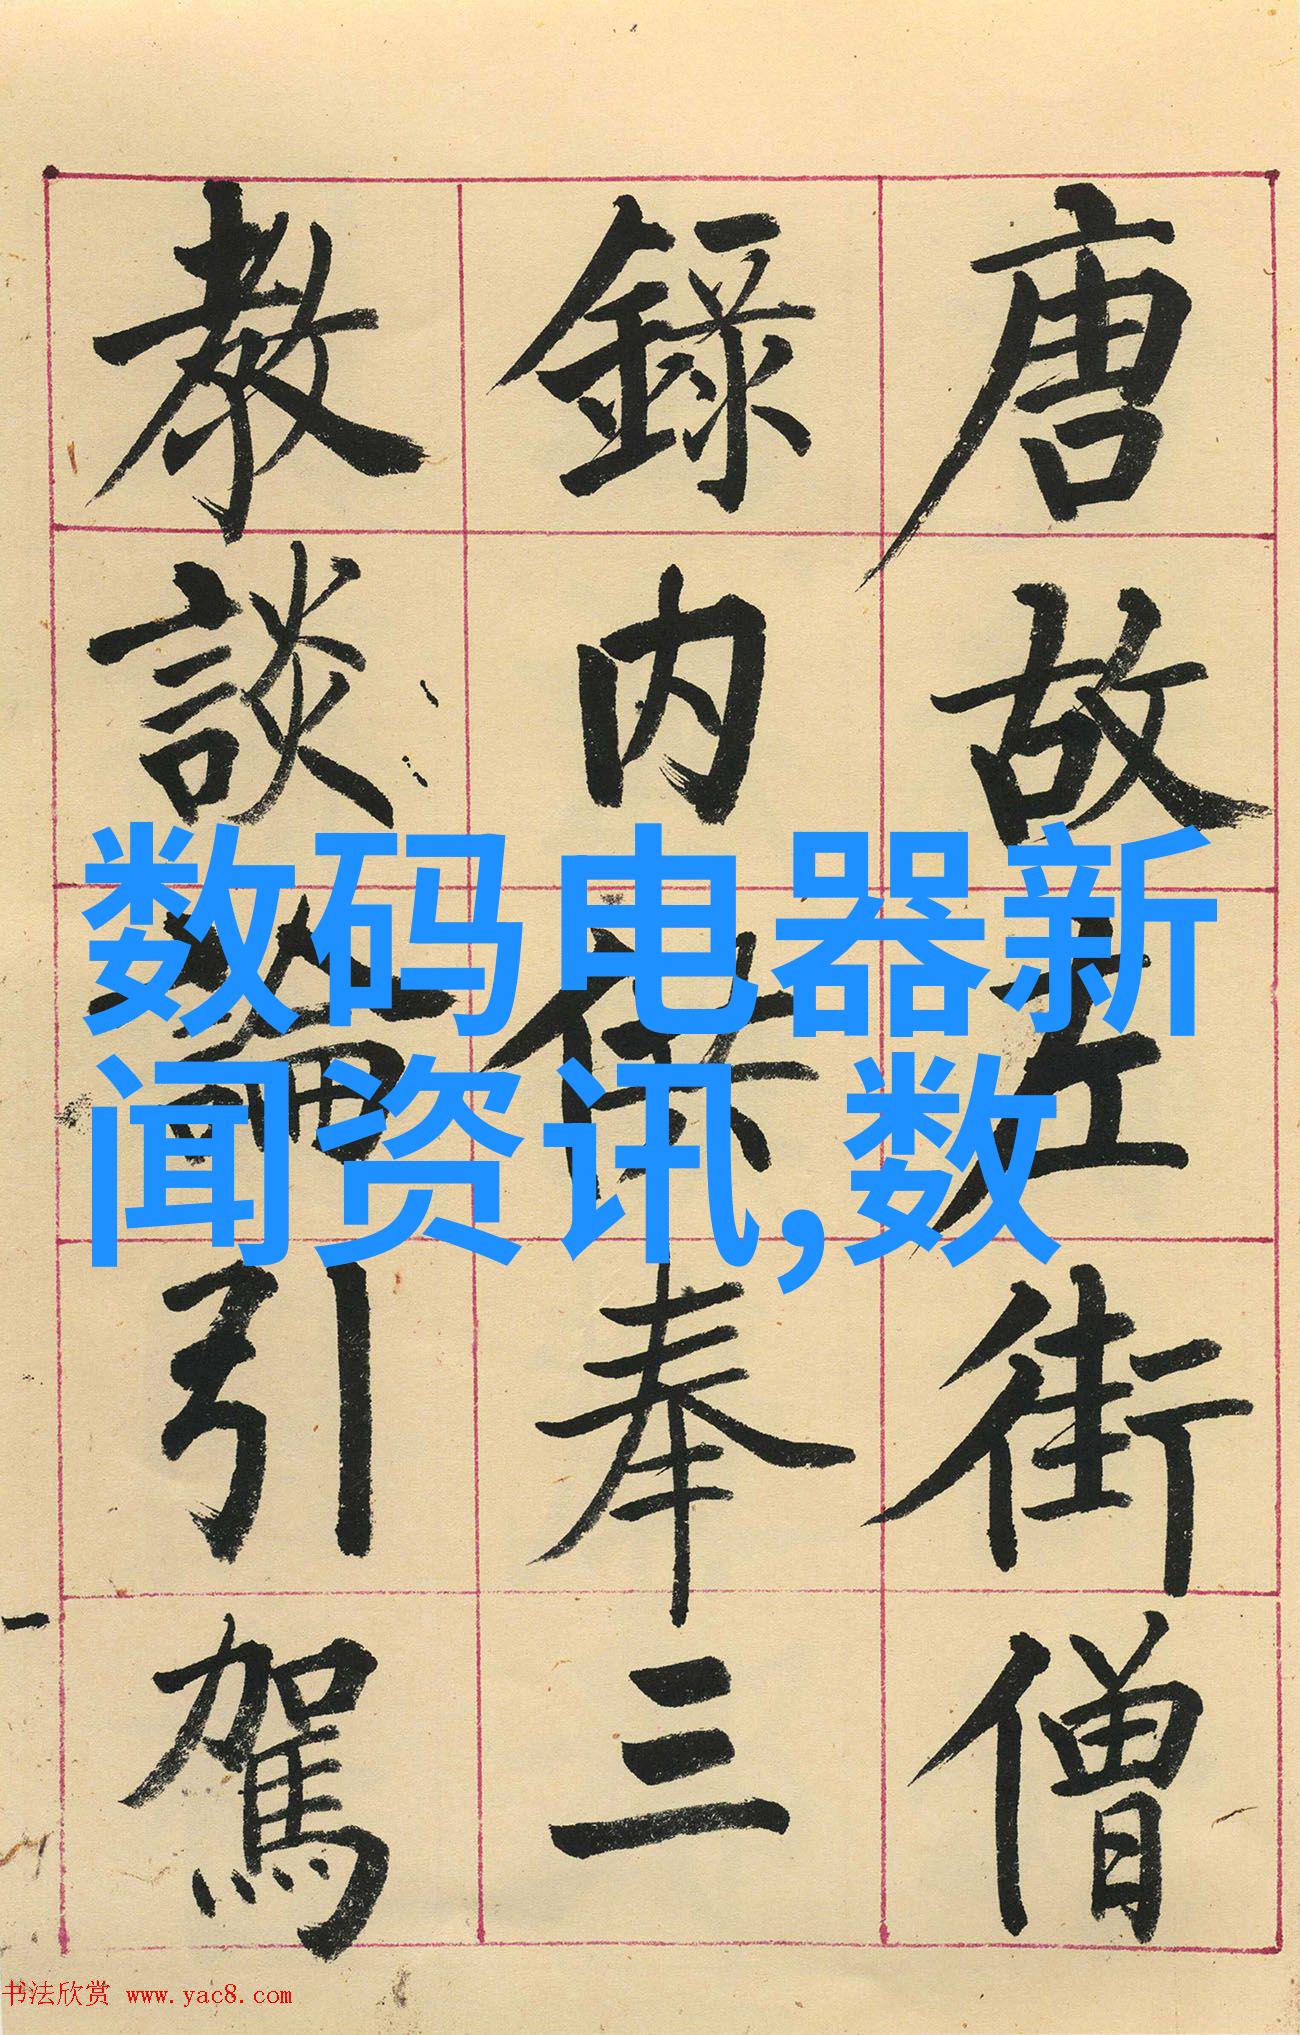 唐故左街僧
錄內供奉三
教談論引駕
数码电器新
闻资讯,数
书法欣赏 www.yac8.com